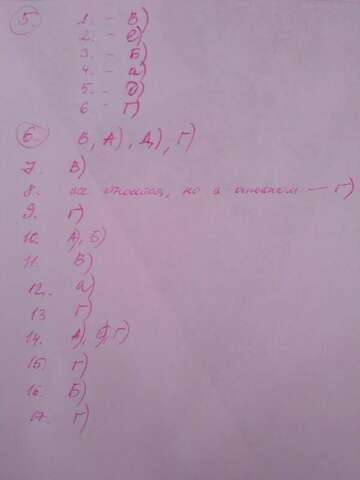 5. 1. - В)
2. - е)
3. - Б)
4. - а)
5. - д)
6 - Г)
6. В, А), Д), Г)
7. В)
8. не относится, но в основном — Г)
9. Г)
10. А), Б)
11. Б)
12. а)
13 Г)
14. А), Г)
15. Г)
16. Б)
17. Г)